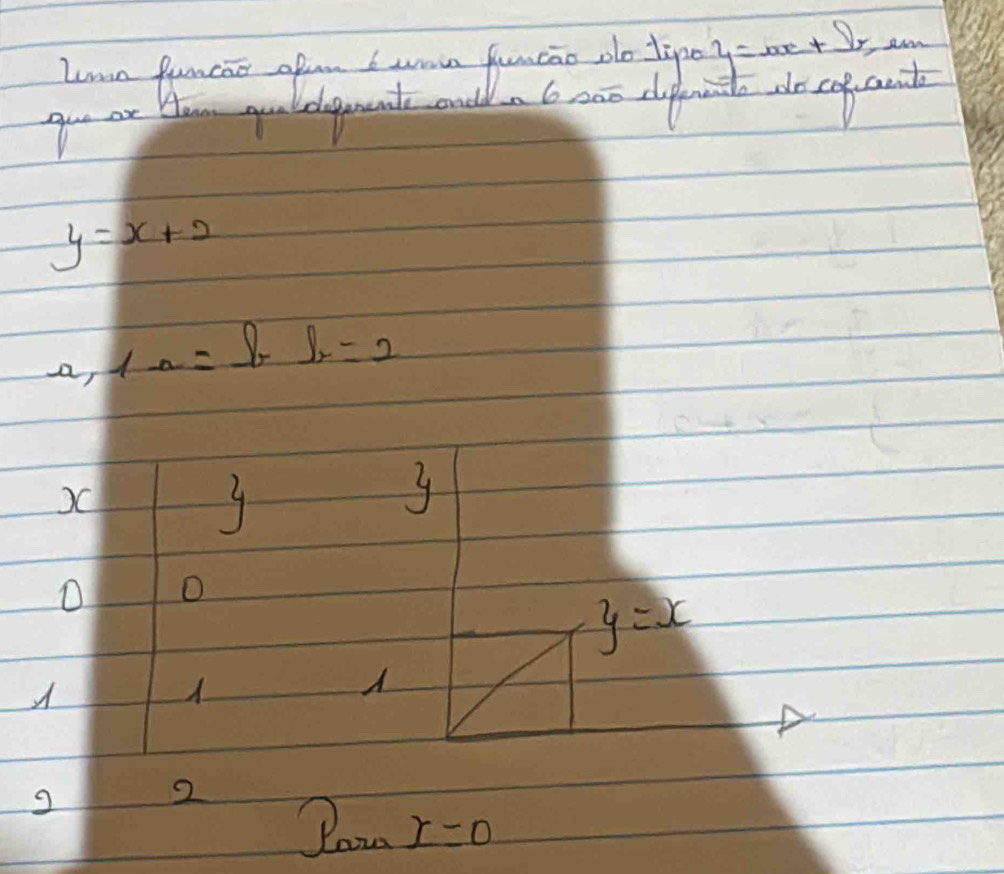 Uma função afim é uma função do tipo y = ax + b, em
que ax tem que onde a 6 são diferente do
y = x + 2
a, 1 a = b b = 2
x y y
0 0
y = x
1 1 1
2 2
Para x = 0